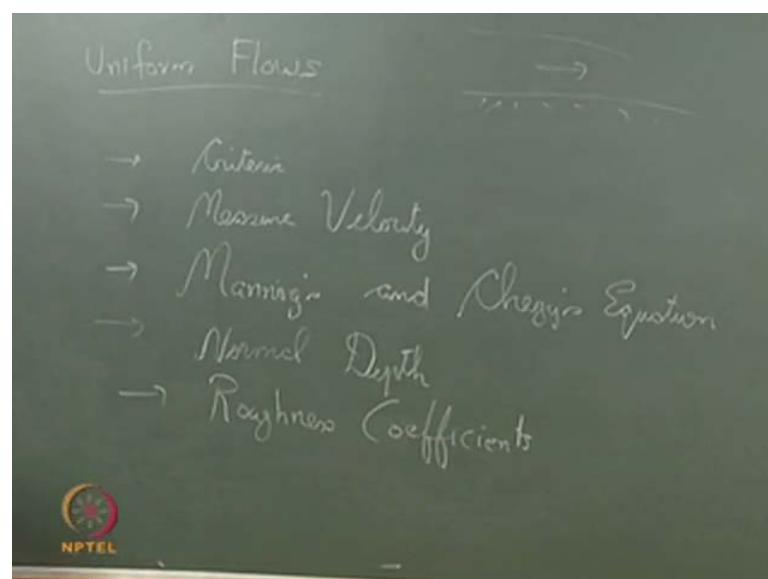 Uniform Flows
→ Criteria
→ Measure Velocity
→ Manning's and Chezy's Equation
→ Normal Depth
→ Roughness Coefficients
NPTEL